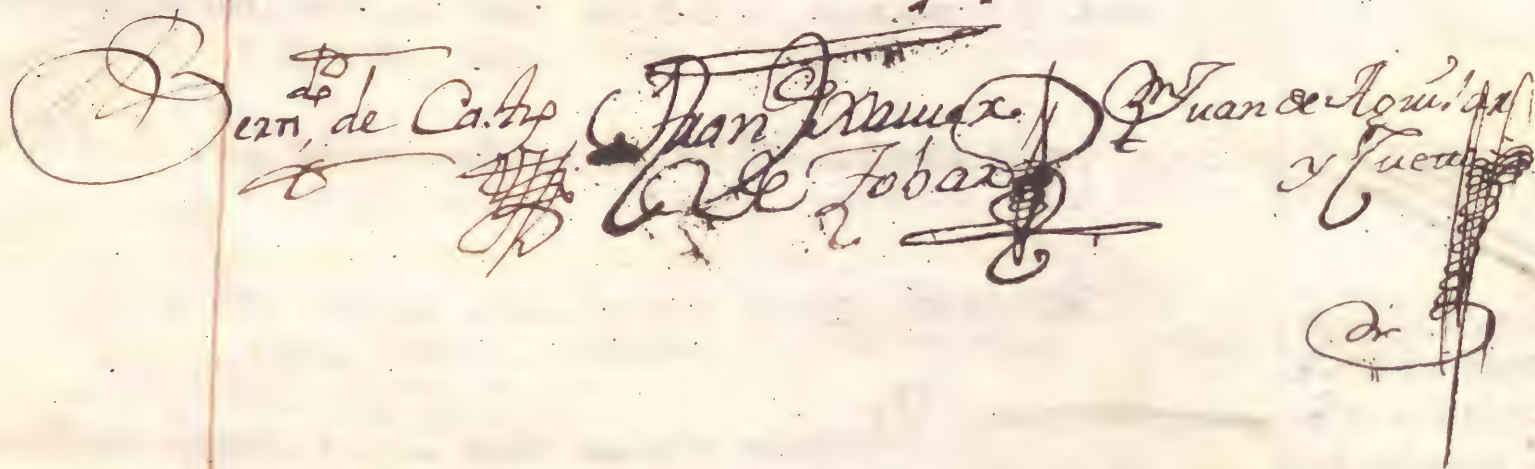 Berndo de Castro
Juan Xauier
de Tobar
Juan de Aguilar
y